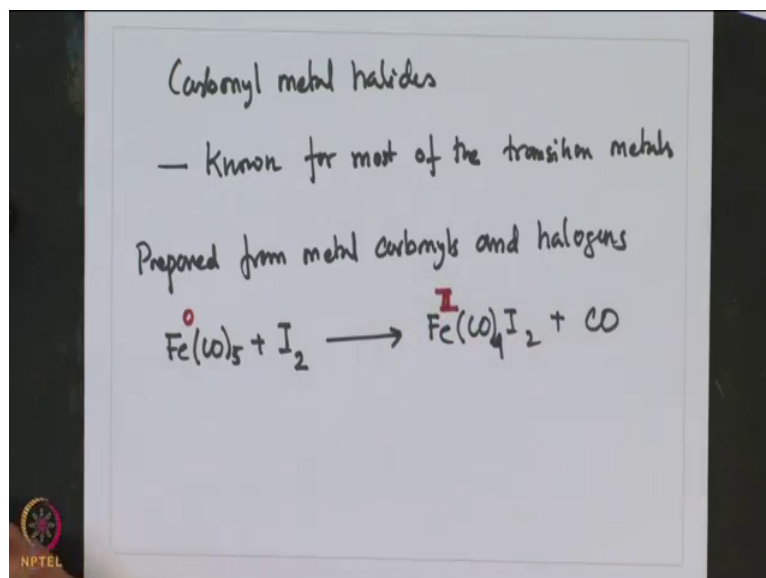 Carbonyl metal halides
— Known for most of the transition metals
Prepared from metal carbonyls and halogens
0 II
Fe(CO)5 + I2 ⟶ Fe(CO)4I2 + CO
NPTEL